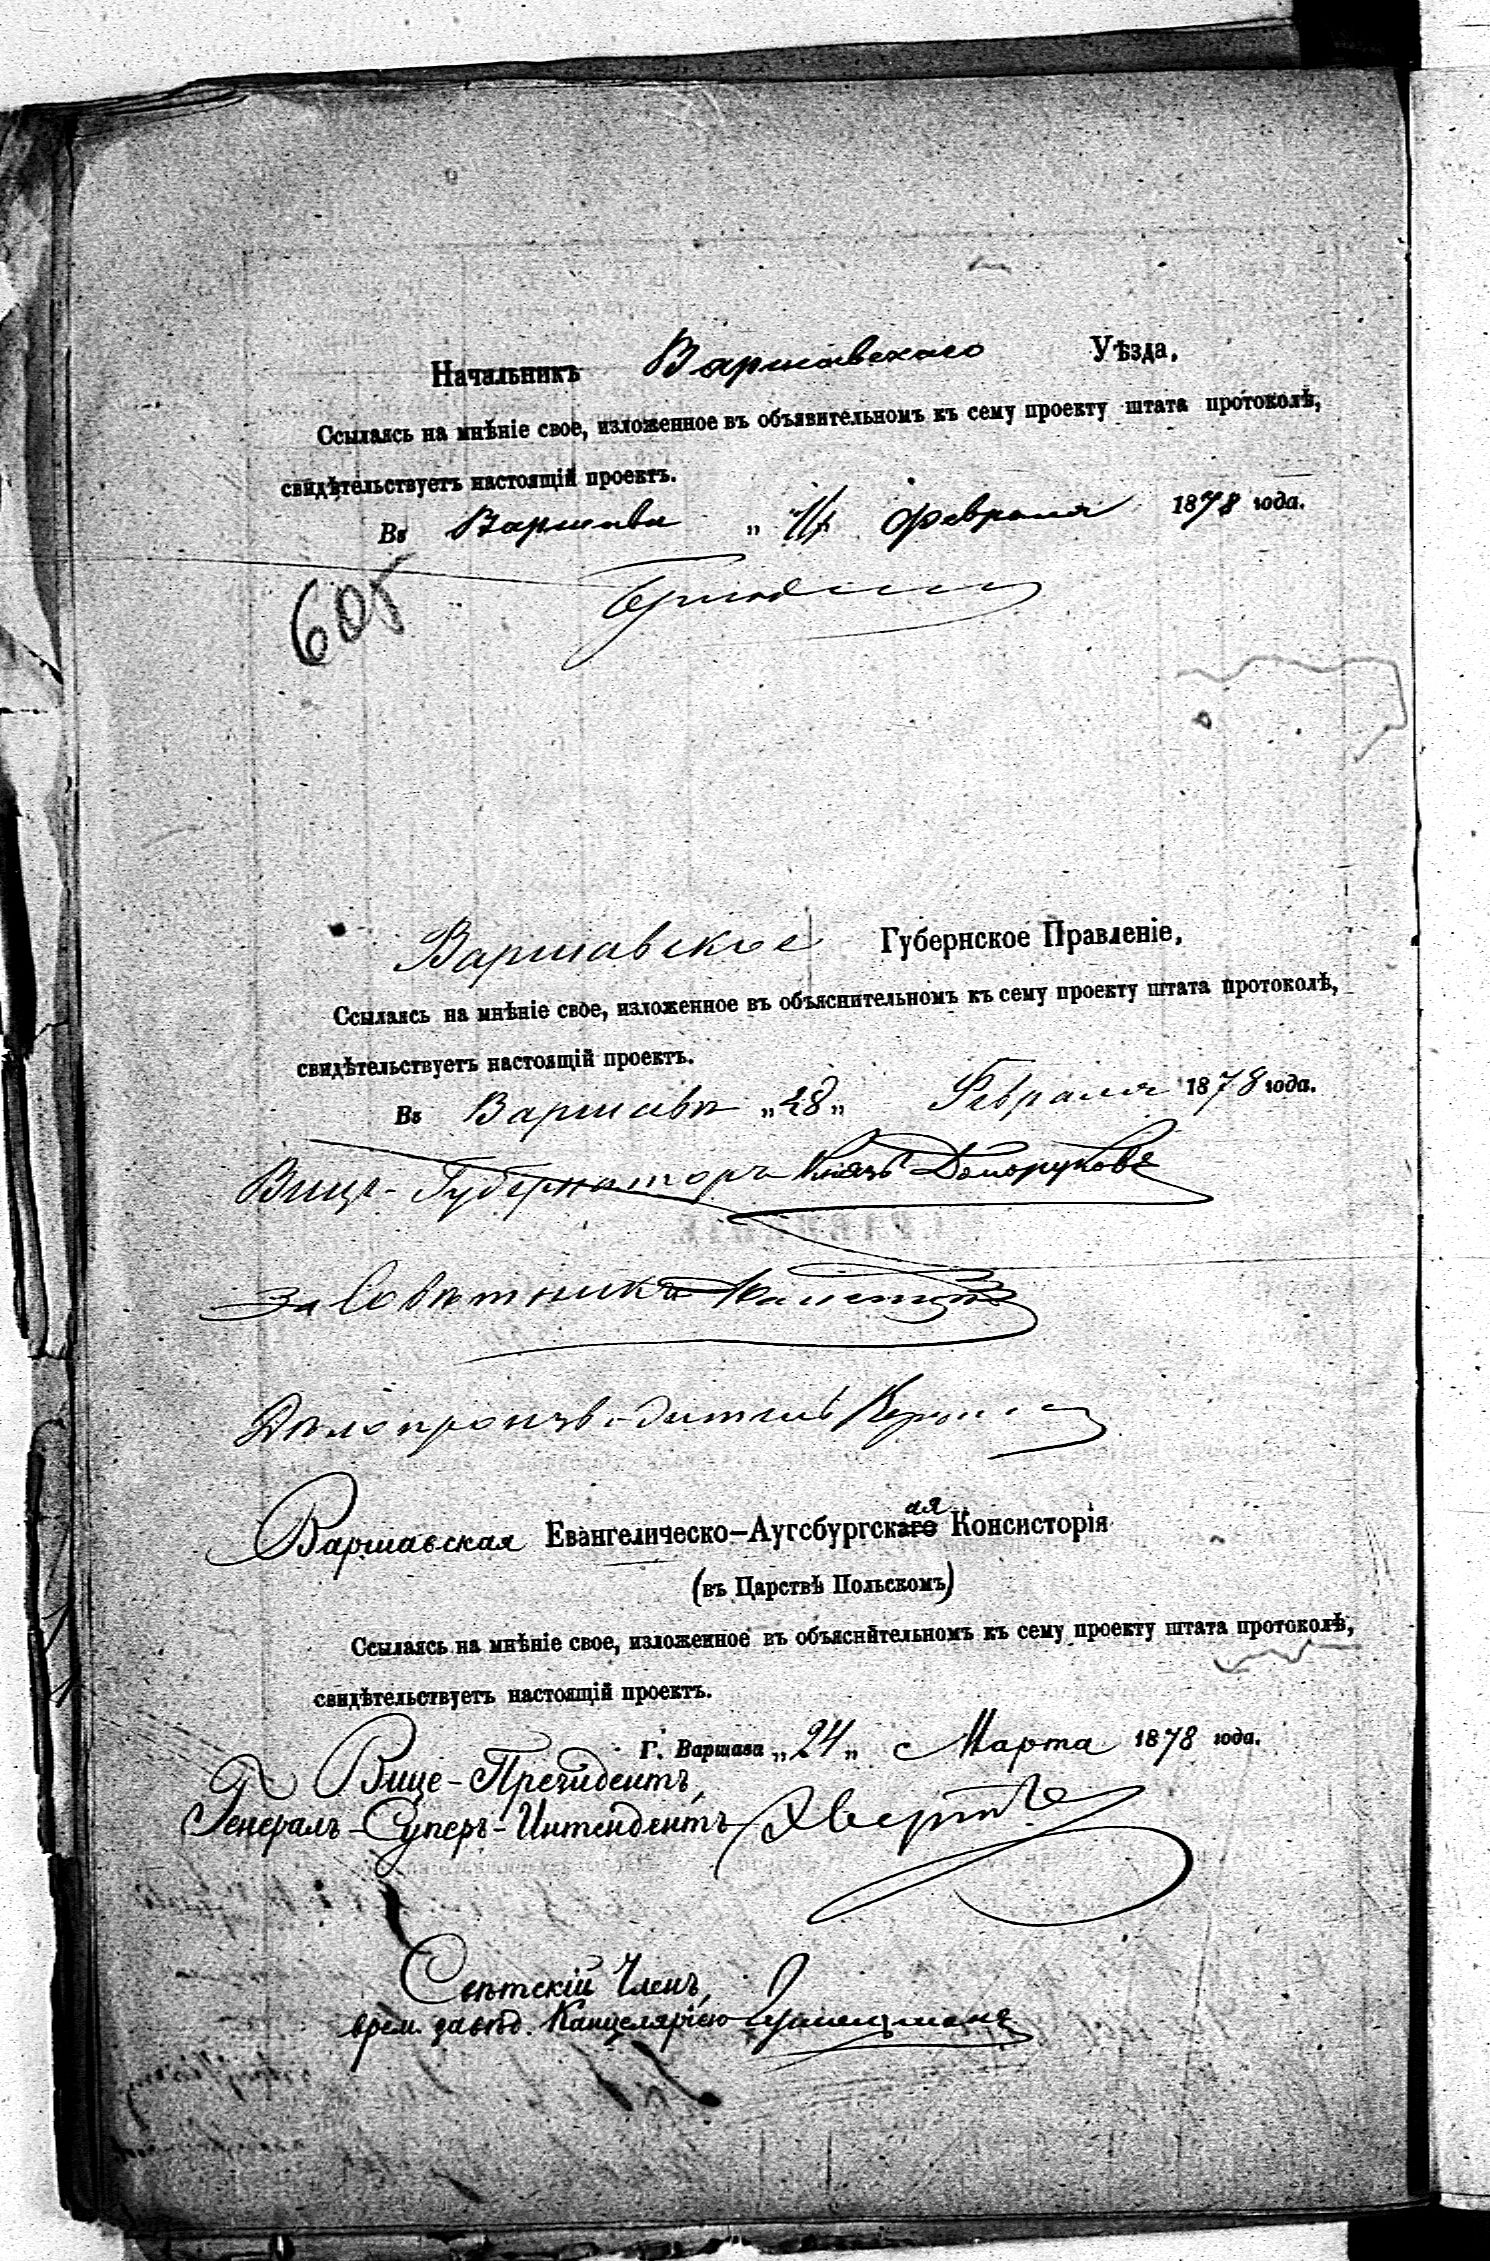 Начальникъ Варшавскаго Уѣзда,
Ссылаясь на мнѣніе свое, изложенное въ объявительномъ къ сему проекту штата протоколѣ,
свидѣтельствуетъ настоящій проектъ.
Въ Варшавѣ „ Февраля 1878 года.
Варшавское Губернское Правленіе,
Ссылаясь на мнѣніе свое, изложенное въ объяснительномъ къ сему проекту штата протоколѣ,
свидѣтельствуетъ настоящій проектъ.
Въ Варшавѣ „28„ Февраля 1878 года.
Вице-Губернаторъ Князь Долоруковъ
За Совѣтника
Дѣлопроизводитель
ая
Варшавская Евангелическо-Аугсбургскаго Консисторія
(въ Царствѣ Польскомъ)
Ссылаясь на мнѣніе свое, изложенное въ объяснительномъ къ сему проекту штата протоколѣ,
свидѣтельствуетъ настоящій проектъ.
Г. Варшава „24„ Марта 1878 года.
Вице-Президентъ,
Генералъ-Суперъ-Интендентъ Эвертъ
Свѣтскій Членъ,
врем. завѣд. Канцеляріею